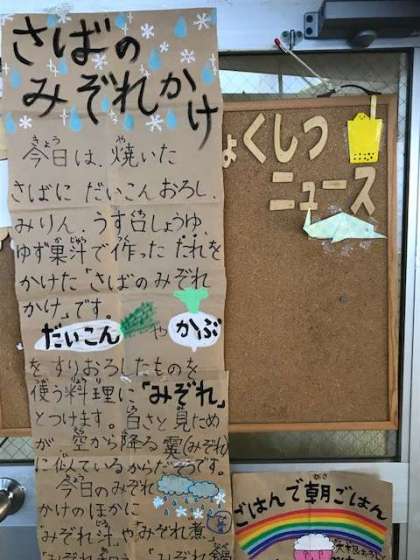 さばの
みぞれかけ
今日は、焼いた
さばに だいこん おろし、
みりん、うす口しょうゆ、
ゆず果汁で作った たれを
かけた「さばのみぞれ
かけ」です。
だいこん や かぶ
を すりおろしたものを
使う料理に「みぞれ」
とつけます。白さと見ため
が 空から降る霙(みぞれ)
に似ているからだそうです。
今日のみぞれ
かけのほかに
「みぞれ汁」や「みぞれ煮」
ょくしつ
ニュース
ごはんで朝ごはん